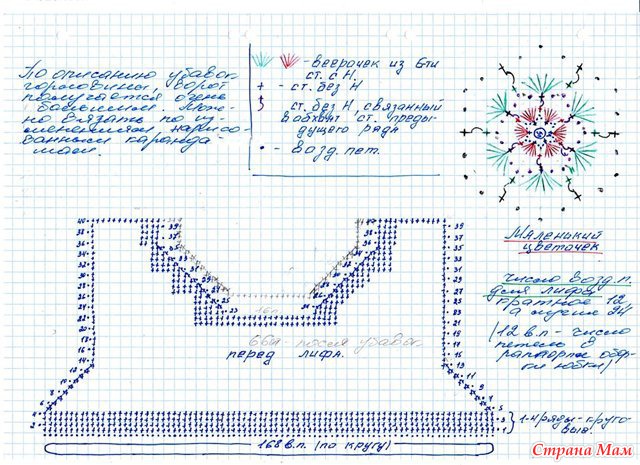 По описанию убавок
горловины, ворот
получается очень
большим. Мож-
но вязать по из-
менениям нарисо-
ванным каранда-
шом.
- веерочек из 6ти
ст. с Н.
+ - ст. без Н
ст. без Н, связанный
в обхват ст. преды-
дущего ряда
• - возд. пет.
Маленький
цветочек
число возд. п.
для лифа
кратное 12,
а лучше 24
(12 в.п - число
петель в
раппорте обвяз-
ки юбки)
66п - после убавок
перед лифа.
1-4 ряды - круго-
вые.
168 в.п. (по кругу)
Страна Мам